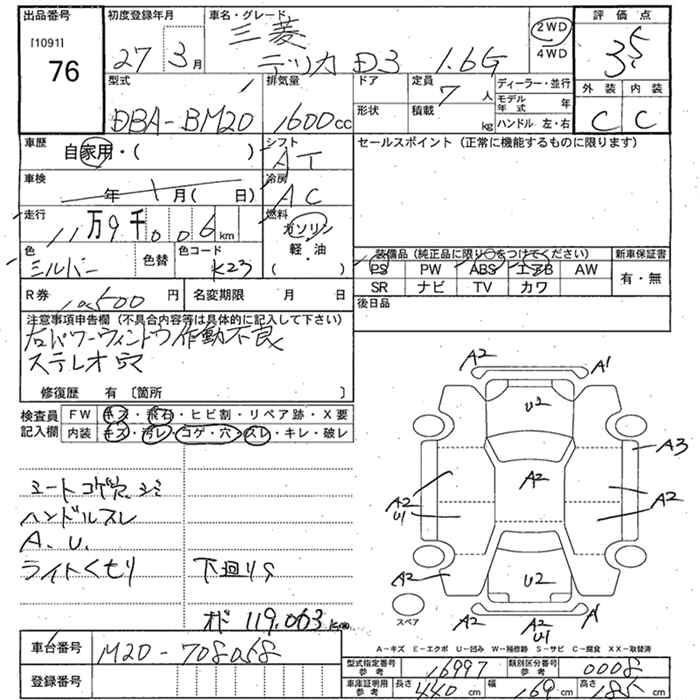 出品番号 初度登録年月 車名・グレード 評価点
[1091] 76 27 3月 三菱 2WD 4WD 3.5
デリカ D3 1.6G
型式 排気量 ドア 定員 7人 ディーラー・並行 外装 内装
DBA-BM20 1600cc 形状 積載 kg モデル年式 年 C C
ハンドル 左・右
車歴 自家用・( ) シフト AT セールスポイント(正常に機能するものに限ります)
車検 年 月( 日) 冷房 AC
走行 11万9千006km 燃料 ガソリン
軽・油
( )
色 シルバー 色替 色コード K23
装備品(純正品に限り○をつけてください) 新車保証書
PS PW ABS エアB AW 有・無
SR ナビ TV カワ
R券 円 名変期限 月 日 後日品
注意事項申告欄(不具合内容等は具体的に記入して下さい)
右パワーウィンドウ作動不良
ステレオ穴
修復歴 有〔箇所 〕
検査員 FW キズ・飛石・ヒビ割・リペア跡・X要
記入欄 内装 キズ・汚レ・コゲ・穴・スレ・キレ・破レ
A2 A1
U2
A3
A2 A2 A2
U1 U1
シートコゲ穴シミ
ハンドルスレ
A.U.
ライトくもり 下廻りS
A2 U2 A2
スペア A2 A2 A1
U1
オド 119,063km
A-キズ E-エクボ U-凹み W-補修跡 S-サビ C-腐食 XX-取替済
車台番号 BM20-708058
登録番号
型式指定番号 参考 16997 類別区分番号 参考 0008
車庫証明用 参考 長さ 440cm 幅 169cm 高さ 185cm